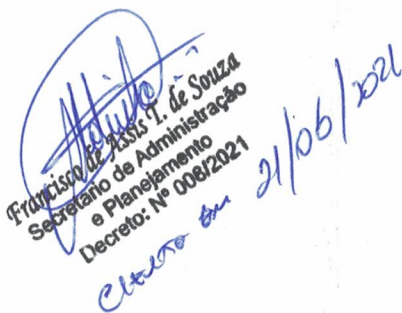 Francisco de Assis T. de Souza
Secretário de Administração
e Planejamento
Decreto: Nº 008/2021
em 21/06/2021